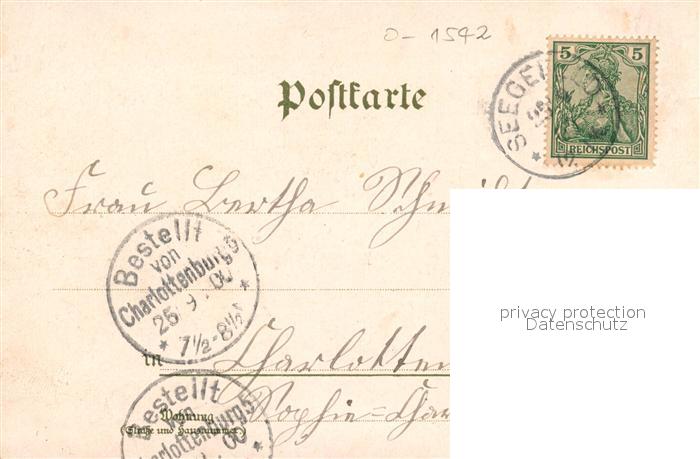 0-1542
5 5
REICHSPOST
SEEGE
Postkarte
Frau Bertha
privacy protection
Datenschutz
Bestellt
von
Charlottenburg 5
25 9 00
7½-8½
in Charlotten
Bestellt
von
Charlottenburg 5
00
Wohnung
(Straße und Hausnummer)
Sophie=Char